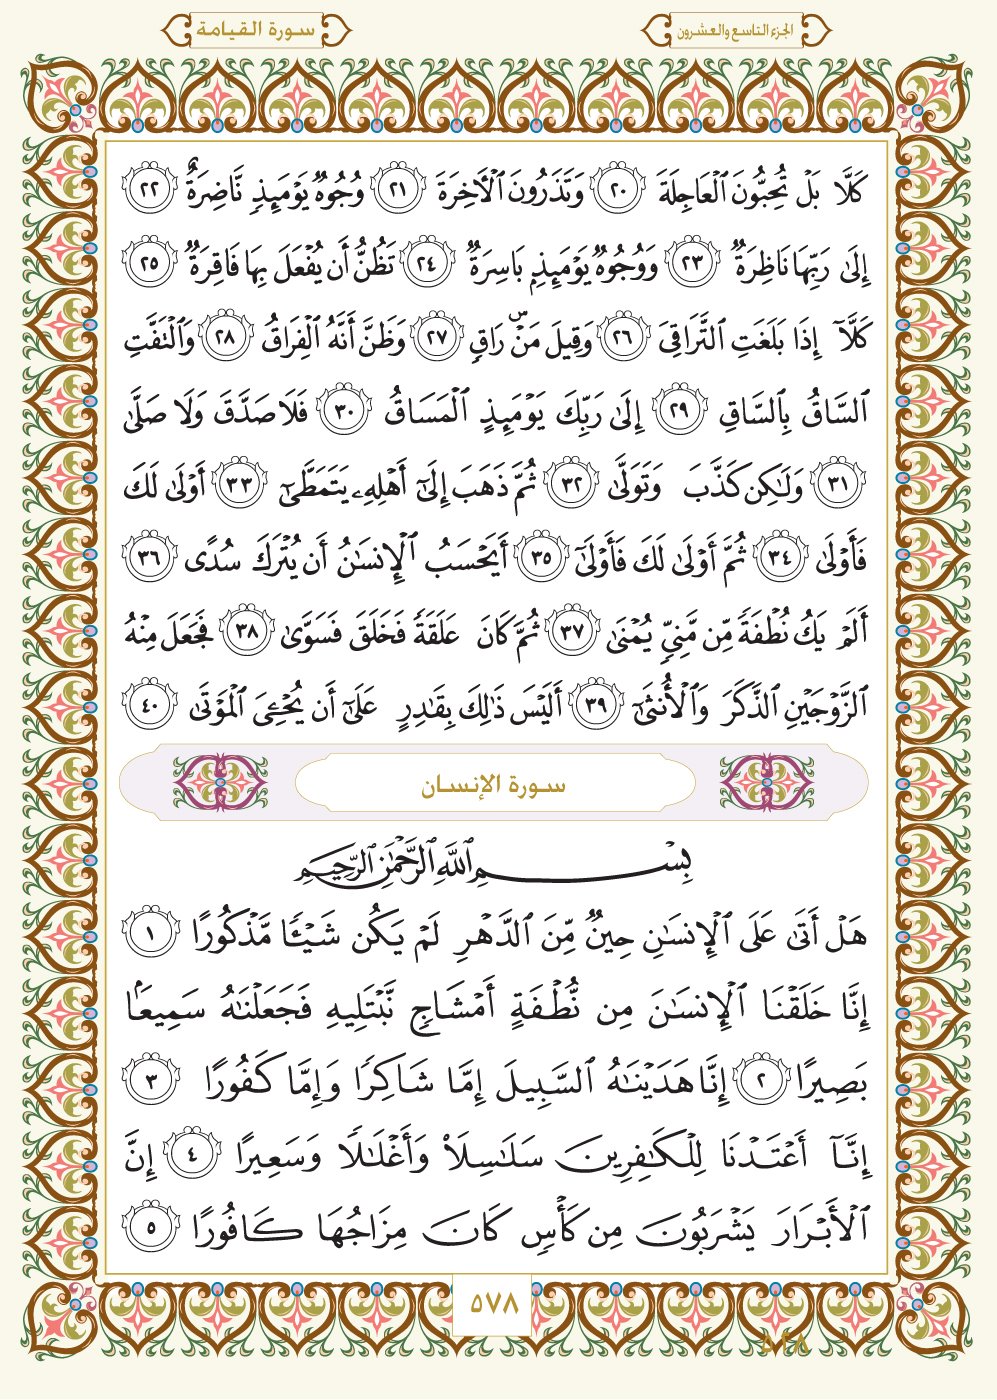 الجزء التاسع والعشرون
سورة القيامة
كَلَّا بَلْ تُحِبُّونَ ٱلْعَاجِلَةَ ٢٠ وَتَذَرُونَ ٱلْآخِرَةَ ٢١ وُجُوهٌ يَوْمَئِذٍ نَّاضِرَةٌ ٢٢
إِلَىٰ رَبِّهَا نَاظِرَةٌ ٢٣ وَوُجُوهٌ يَوْمَئِذٍۭ بَاسِرَةٌ ٢٤ تَظُنُّ أَن يُفْعَلَ بِهَا فَاقِرَةٌ ٢٥
كَلَّآ إِذَا بَلَغَتِ ٱلتَّرَاقِىَ ٢٦ وَقِيلَ مَنْۜ رَاقٍ ٢٧ وَظَنَّ أَنَّهُ ٱلْفِرَاقُ ٢٨ وَٱلْتَفَّتِ
ٱلسَّاقُ بِٱلسَّاقِ ٢٩ إِلَىٰ رَبِّكَ يَوْمَئِذٍ ٱلْمَسَاقُ ٣٠ فَلَا صَدَّقَ وَلَا صَلَّىٰ
٣١ وَلَٰكِن كَذَّبَ وَتَوَلَّىٰ ٣٢ ثُمَّ ذَهَبَ إِلَىٰٓ أَهْلِهِۦ يَتَمَطَّىٰٓ ٣٣ أَوْلَىٰ لَكَ
فَأَوْلَىٰ ٣٤ ثُمَّ أَوْلَىٰ لَكَ فَأَوْلَىٰٓ ٣٥ أَيَحْسَبُ ٱلْإِنسَٰنُ أَن يُتْرَكَ سُدًى ٣٦
أَلَمْ يَكُ نُطْفَةً مِّن مَّنِىٍّ يُمْنَىٰ ٣٧ ثُمَّ كَانَ عَلَقَةً فَخَلَقَ فَسَوَّىٰ ٣٨ فَجَعَلَ مِنْهُ
ٱلزَّوْجَيْنِ ٱلذَّكَرَ وَٱلْأُنثَىٰٓ ٣٩ أَلَيْسَ ذَٰلِكَ بِقَٰدِرٍ عَلَىٰٓ أَن يُحْۦِىَ ٱلْمَوْتَىٰ ٤٠
سورة الإنسان
بِسْمِ ٱللَّهِ ٱلرَّحْمَٰنِ ٱلرَّحِيمِ
هَلْ أَتَىٰ عَلَى ٱلْإِنسَٰنِ حِينٌ مِّنَ ٱلدَّهْرِ لَمْ يَكُن شَيْـًٔا مَّذْكُورًا ١
إِنَّا خَلَقْنَا ٱلْإِنسَٰنَ مِن نُّطْفَةٍ أَمْشَاجٍ نَّبْتَلِيهِ فَجَعَلْنَٰهُ سَمِيعًۢا
بَصِيرًا ٢ إِنَّا هَدَيْنَٰهُ ٱلسَّبِيلَ إِمَّا شَاكِرًا وَإِمَّا كَفُورًا ٣
إِنَّآ أَعْتَدْنَا لِلْكَٰفِرِينَ سَلَٰسِلَا۟ وَأَغْلَٰلًا وَسَعِيرًا ٤ إِنَّ
ٱلْأَبْرَارَ يَشْرَبُونَ مِن كَأْسٍ كَانَ مِزَاجُهَا كَافُورًا ٥
٥٧٨